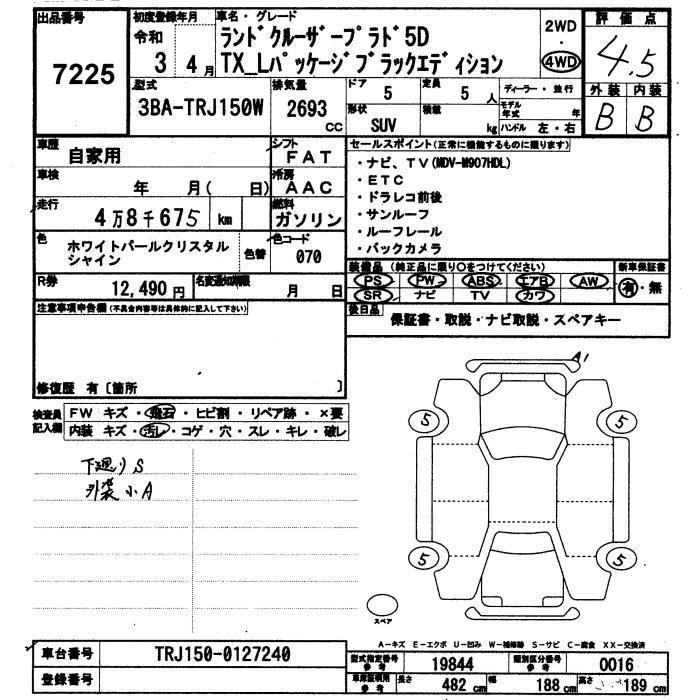 出品番号
7225
初度登録年月
令和
3年4月
車名・グレード
ランドクルーザープラド5D
TX_Lパッケージブラックエディション
2WD
・
4WD
評価点
4.5
外装 内装
B B
型式
3BA-TRJ150W
排気量
2693
cc
ドア
5
定員
5人
形状
SUV
積載
kg
ディーラー・並行
モデル年式 年
ハンドル 左・右
車歴
自家用
シフト
FAT
車検
年 月( 日)
冷房
AAC
走行
4万8千675 km
燃料
ガソリン
色
ホワイトパールクリスタル
シャイン
色替
色コード
070
R券
12,490円
名変通知期限
月 日
セールスポイント(正常に機能するものに限ります)
・ナビ、TV(MDV-M907HDL)
・ETC
・ドラレコ前後
・サンルーフ
・ルーフレール
・バックカメラ
装備品 (純正品に限り○をつけてください)
PS PW ABS エアB AW
SR ナビ TV カワ
新車保証書
有・無
後日品
保証書・取説・ナビ取説・スペアキー
注意事項申告欄(不具合内容等は具体的に記入して下さい)
修復歴 有〔箇所 〕
検査員記入欄
FW キズ・飛石・ヒビ割・リペア跡・×要
内装 キズ・汚レ・コゲ・穴・スレ・キレ・破レ
下廻りS
外装小A
A1
5
5
5
5
スペア
A-キズ E-エクボ U-凹み W-補修跡 S-サビ C-腐食 XX-交換済
車台番号
TRJ150-0127240
登録番号
型式指定番号 参考
19844
類別区分番号 参考
0016
車庫証明用 参考
長さ 482 cm 幅 188 cm 高さ 189 cm